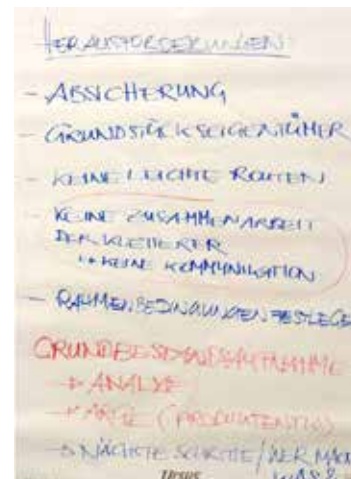 HERAUSFORDERUNGEN:
- ABSICHERUNG
- GRUNDSTÜCKSEIGENTÜMER
- KEINE LEICHTE ROUTEN
- KEINE ZUSAMMENARBEIT
DER KLETTERER
↳ KEINE KOMMUNIKATION
- RAHMENBEDINGUNGEN FESTLEGE
GRUNDBESTANDSAUFNAHME
→ ANALYSE
→ NÄCHSTE SCHRITTE / WER MACH
WAS?